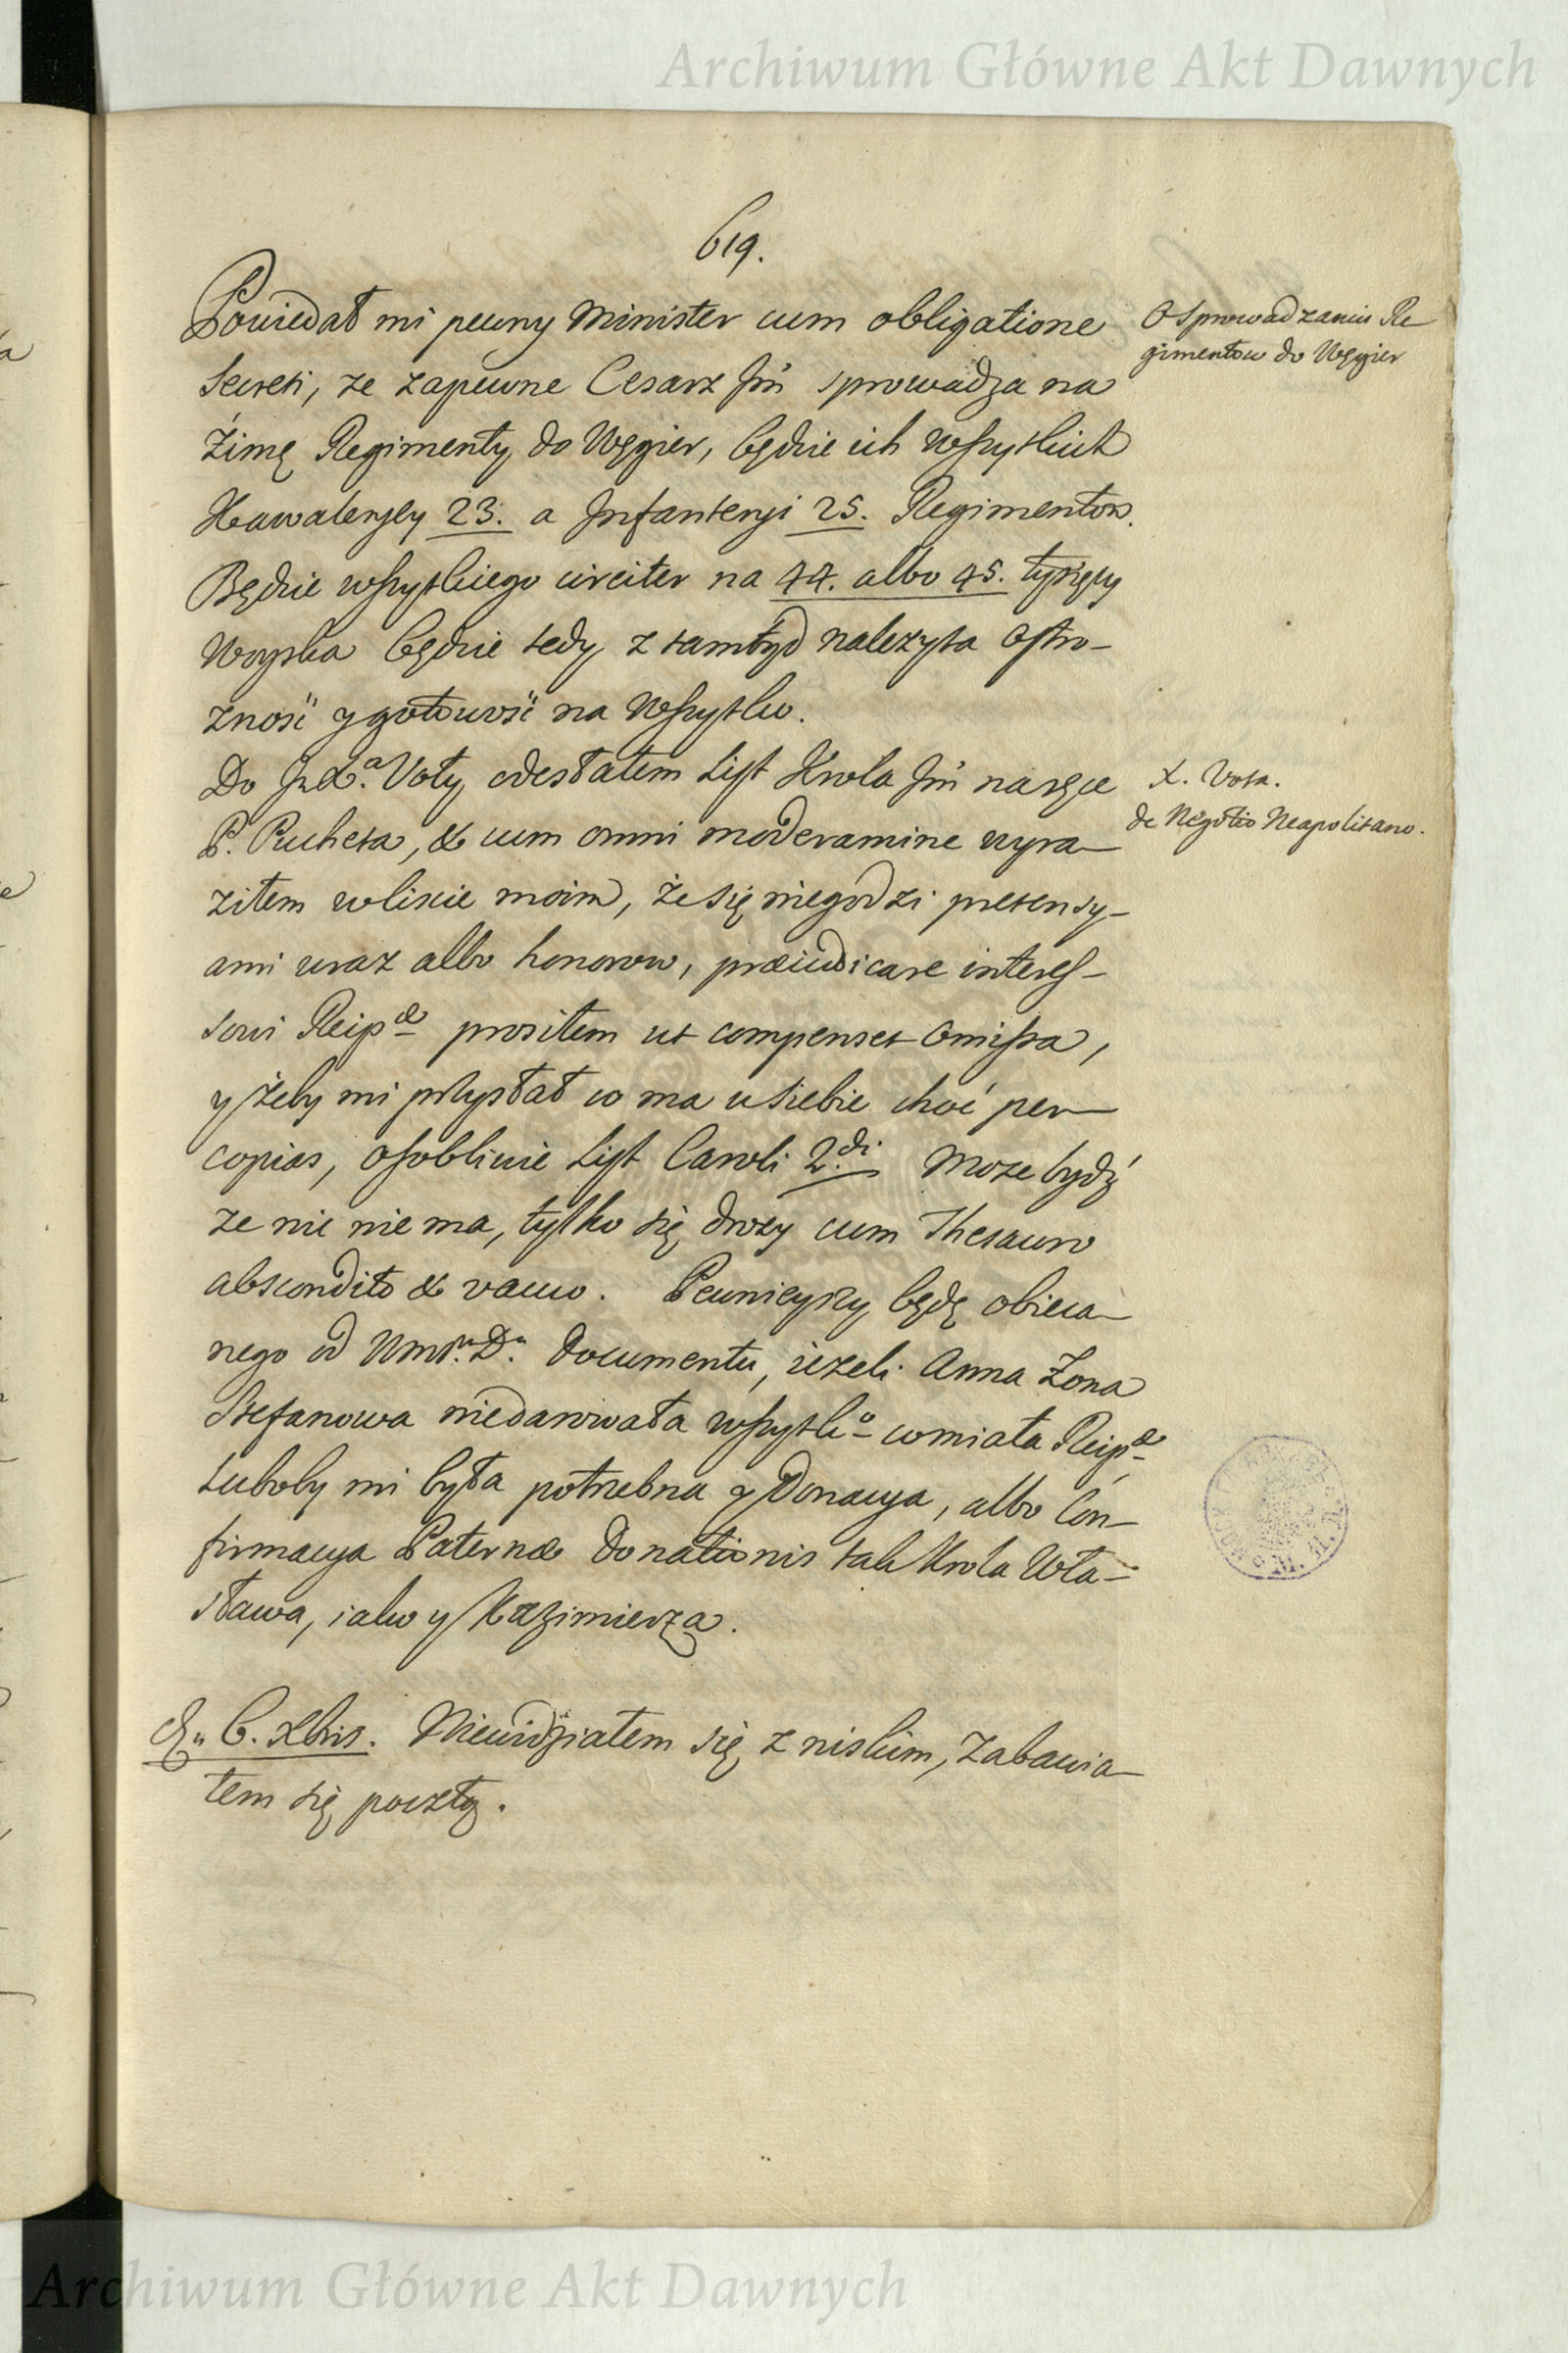 Archiwum Główne Akt Dawnych
619.
Powiedał mi pewny Minister cum obligatione
Secreti, ze zapewne Cesarz Jm̃ sprowadza na
Zimę Regimenty do Węgier, będzie ich wszytkich
Kawaleryey 23. a Infanteryi 25. Regimentow.
Będzie wszytkiego circiter na 44. albo 45. tysięcy
Woyska będzie tedy z tamtąd nalezyta ostro-
zność y gotowość na wszytko.
Do Jx.ᵃ Voty odesłałem List Krola Jm̃ naręce
P. Pucheta, & cum omni moderamine wyra-
ziłem wliście moim, że się niegodzi pretensy-
ami uraz albo honorow, præiudicare interes-
sowi Reipᵉ prosiłem ut compenset omissa,
y żeby mi przysłał co ma usiebie choć per
copias, osobliwie List Caroli 2.ᵈⁱ Moze bydź
ze nic nie ma, tylko się drozy cum Thesauro
abscondito & vacuo. Pewnieyszy będę obieca-
nego od Documentu, iezeli Anna Zona
Stefanowa niedarowała wszytkᵒ comiała Reipᵉ
Luboby mi była potrzebna y Donacya, albo Con-
firmacya Paternæ Donationis tak Krola Wła-
sława, iako y Kazimierza.
6. Xbris. Niewidziałem się z niskim, Zabawia-
łem się pocztą.
O Sprowadzaniu Re-
gimentow do Węgier
X. Vota.
de Negotio Neapolitano.
Archiwum Główne Akt Dawnych